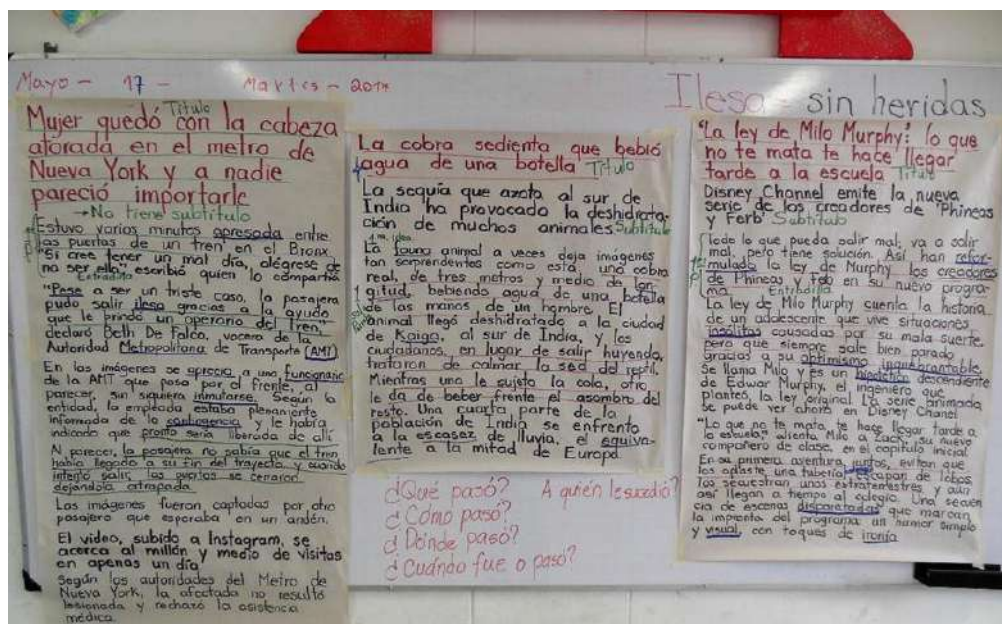 Mayo - 17 - Martes - 201
Ilesa - sin heridas
Mujer quedó con la cabeza
Título
atorada en el metro de
Nueva York y a nadie
pareció importarle
→ No tiene subtítulo
Estuvo varios minutos apresada entre
las puertas de un tren en el Bronx.
"Si cree tener un mal día, alégrese de
no ser ella", escribió quien lo compartía
Entradilla
"Pese a ser un triste caso, la pasajera
pudo salir ilesa gracias a la ayuda
que le brindó un operario del tren,"
declaró Beth De Falco, vocera de la
Autoridad Metropolitana de Transporte (AMT)
En las imágenes se aprecia a una funcionaria
de la AMT que pasa por el frente, al
parecer, sin siquiera inmutarse. Según la
entidad, la empleada estaba plenamente
informada de la contingencia y le había
indicado que pronto sería liberada de allí
Al parecer, la pasajera no sabía que el tren
había llegado a su fin del trayecto y cuando
intentó salir, las puertas se cerraron
dejándola atrapada.
Las imágenes fueron captadas por otro
pasajero que esperaba en un andén.
El video, subido a Instagram, se
acerca al millón y medio de visitas
en apenas un día
Según las autoridades del Metro de
Nueva York, la afectada no resultó
lesionada y rechazó la asistencia
médica.
La cobra sedienta que bebió
agua de una botella Título
La sequía que azota al sur de
India ha provocado la deshidrata-
ción de muchos animales Subtítulo
La fauna animal a veces deja imágenes
tan sorprendentes como esta una cobra
real, de tres metros y medio de lon-
gitud, bebiendo agua de una botella
de las manos de un hombre. El
animal llegó deshidratado a la ciudad
de Kaiga, al sur de India, y los
ciudadanos, en lugar de salir huyendo,
trataron de calmar la sed del reptil.
Mientras uno le sujeta la cola, otro
le da de beber frente el asombro del
resto. Una cuarta parte de la
población de India se enfrenta
a la escasez de lluvia, el equiva-
lente a la mitad de Europa
¿Qué pasó? A quién le sucedió?
¿Cómo pasó?
¿Dónde pasó?
¿Cuándo fue o pasó?
"La ley de Milo Murphy": lo que
no te mata te hace llegar
tarde a la escuela Título
Disney Channel emite la nueva
serie de los creadores de 'Phineas
y Ferb' Subtítulo
Todo lo que pueda salir mal, va a salir
mal, pero tiene solución. Así han refor-
mulado la ley de Murphy los creadores
de Phineas y Ferb en su nuevo progra-
ma Entradilla
La ley de Milo Murphy cuenta la historia
de un adolescente que vive situaciones
insólitas causadas por su mala suerte,
pero que siempre sale bien parado
gracias a su optimismo inquebrantable.
Se llama Milo y es un descendiente
de Edwar Murphy, el ingeniero que
plantes, la ley original La serie animada
se puede ver ahora en Disney Chanel
"Lo que no te mata, te hace llegar tarde a
la escuela", alienta Milo a Zach, su nuevo
compañero de clase, en el capítulo inicial
En su primera aventura juntos, evitan que
los aplaste una tubería, escapan de lobos,
los secuestran unos extraterrestres y aún
así llegan a tiempo al colegio. Una secuen
cia de escenas disparatadas que marcan
la impronta del programa: un humor simple
y visual, con toques de ironía